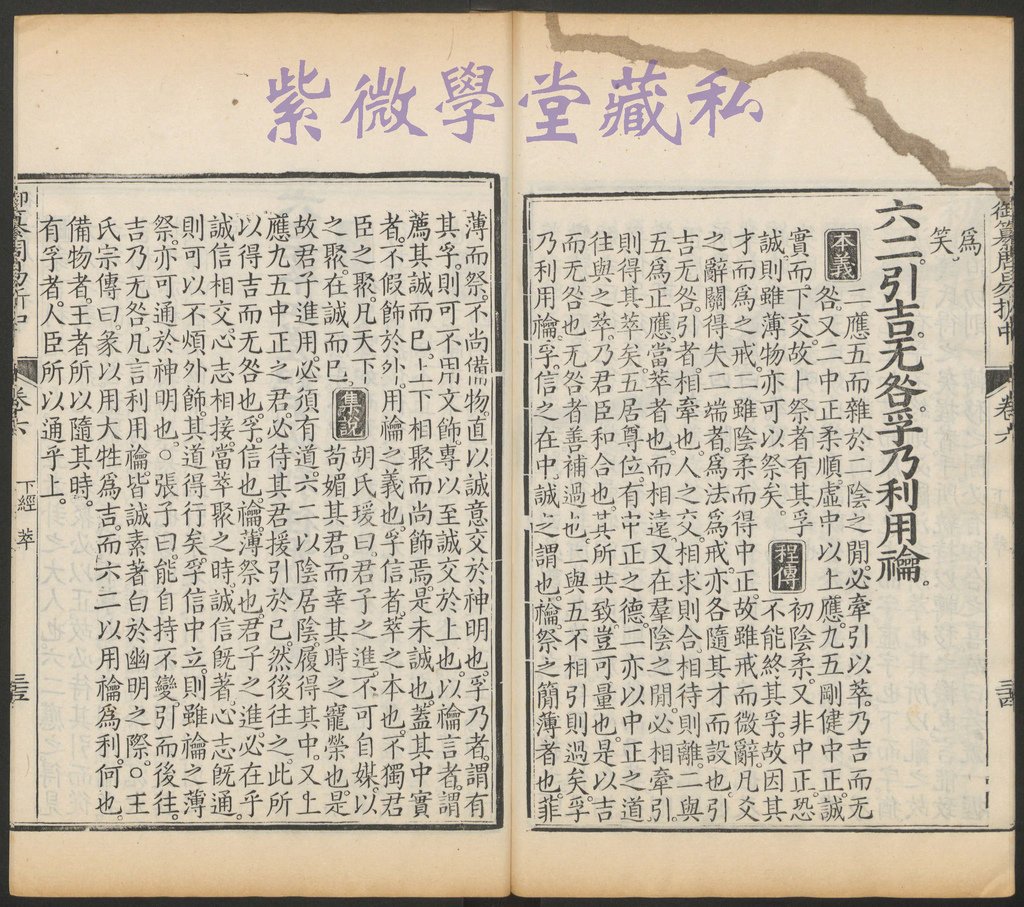 紫微學堂藏私
御纂周易折中 卷六 三四
為
笑。
六二引吉无咎孚乃利用禴。
本義
二應五而雜於二陰之閒。必牽引以萃。乃吉而无
咎。又二中正柔順。虛中以上應。九五剛健中正。誠
實而下交。故卜祭者有其孚
誠。則雖薄物。亦可以祭矣。
程傳
初陰柔。又非中正。恐
不能終其孚。故因其
才而為之戒。二雖陰柔而得中正。故雖戒而微辭。凡爻
之辭。關得失二端者。為法為戒。亦各隨其才而設也。引
吉无咎。引者相牽也。人之交。相求則合。相待則離。二與
五為正應。當萃者也。而相遠。又在羣陰之閒。必相牽引。
則得其萃矣。五居尊位。有中正之德。二亦以中正之道
往與之萃。乃君臣和合也。其所共致。豈可量也。是以吉
而无咎也。无咎者善補過也。二與五不相引則過矣。孚
乃利用禴。孚信之在中。誠之謂也。禴祭之簡薄者也。菲
薄而祭。不尚備物。直以誠意交於神明也。孚乃者。謂有
其孚。則可不用文飾。專以至誠交於上也。以禴言者。謂
薦其誠而已。上下相聚而尚飾焉。是未誠也。蓋其中實
者。不假飾於外。用禴之義也。孚信者。萃之本也。不獨君
臣之聚。凡天下
之聚。在誠而已。
集說
胡氏瑗曰。君子之進。不可自媒。以
苟媚其君。而幸其時之寵榮也。是
故君子進用。必須有道。六二以陰居陰。履得其中。又上
應九五中正之君。必待其君援引於已。然後往之。此所
以得吉而无咎也。孚信也。禴薄祭也。君子之進。必在乎
誠信相交。心志相接。當萃聚之時。誠信既著。心志既通。
則可以不煩外飾。其道得行矣。孚信中立。則雖禴之薄
祭。亦可通於神明也。○張子曰。能自持不變。引而後往。
吉乃无咎。凡言利用禴。皆誠素著白於幽明之際。○王
氏宗傳曰。彖以用大牲為吉。而六二以用禴為利。何也。
備物者。王者所以隨其時。
有孚者。人臣所以通乎上。
御纂周易折中 卷六 下經 萃 三五